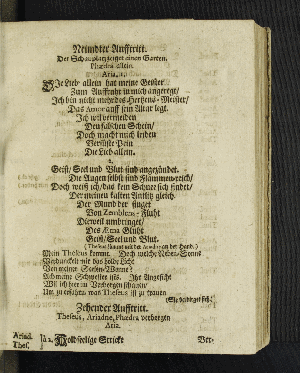 Neundter Aufftritt.
Der Schauplatz zeiget einen Garten.
Phædra allein.
Aria. 1.
Die Lieb' allein hat meine Geister
Zum Auffruhr in mich angereget/
Ich bin nicht mehr des Hertzens-Meister/
Das Amor auff sein Altar legt.
Ich wil vermeiden
Den falschen Schein/
Doch macht mich leiden
Die Lieb allein.
2.
Geist/ Seel und Blut sind angezündet.
Die Augen selbst sind Flammen-reich/
Doch weiß ich/ das kein Schnee sich findet/
Der meinen kalten gleich.
Der Mund der
Von Zemblens-Fluht
Die weil umbringet/
Des Ætna Gluht
Geist/ Seel und Blut.
(Theseus kommt mit der Ariadne an der Hand.)
Mein Theseus kommt. Doch welche Neben-Sonne
Verdunckelt mir das holde Licht
Von meiner Seelen-Wonne?
Ariadne Schwester ists. Ihr Angesicht
Wil ich hier im Verborgen schauen/
Um zu erfahren was Theseus ist zu trauen
(Sie verbirget sich.)
Zehender Aufftritt.
Theseus, Ariadne, Phædra verborgen
Aria.
à 2. Holdseelige Stricke
Ariad.
Thes.
Ver-